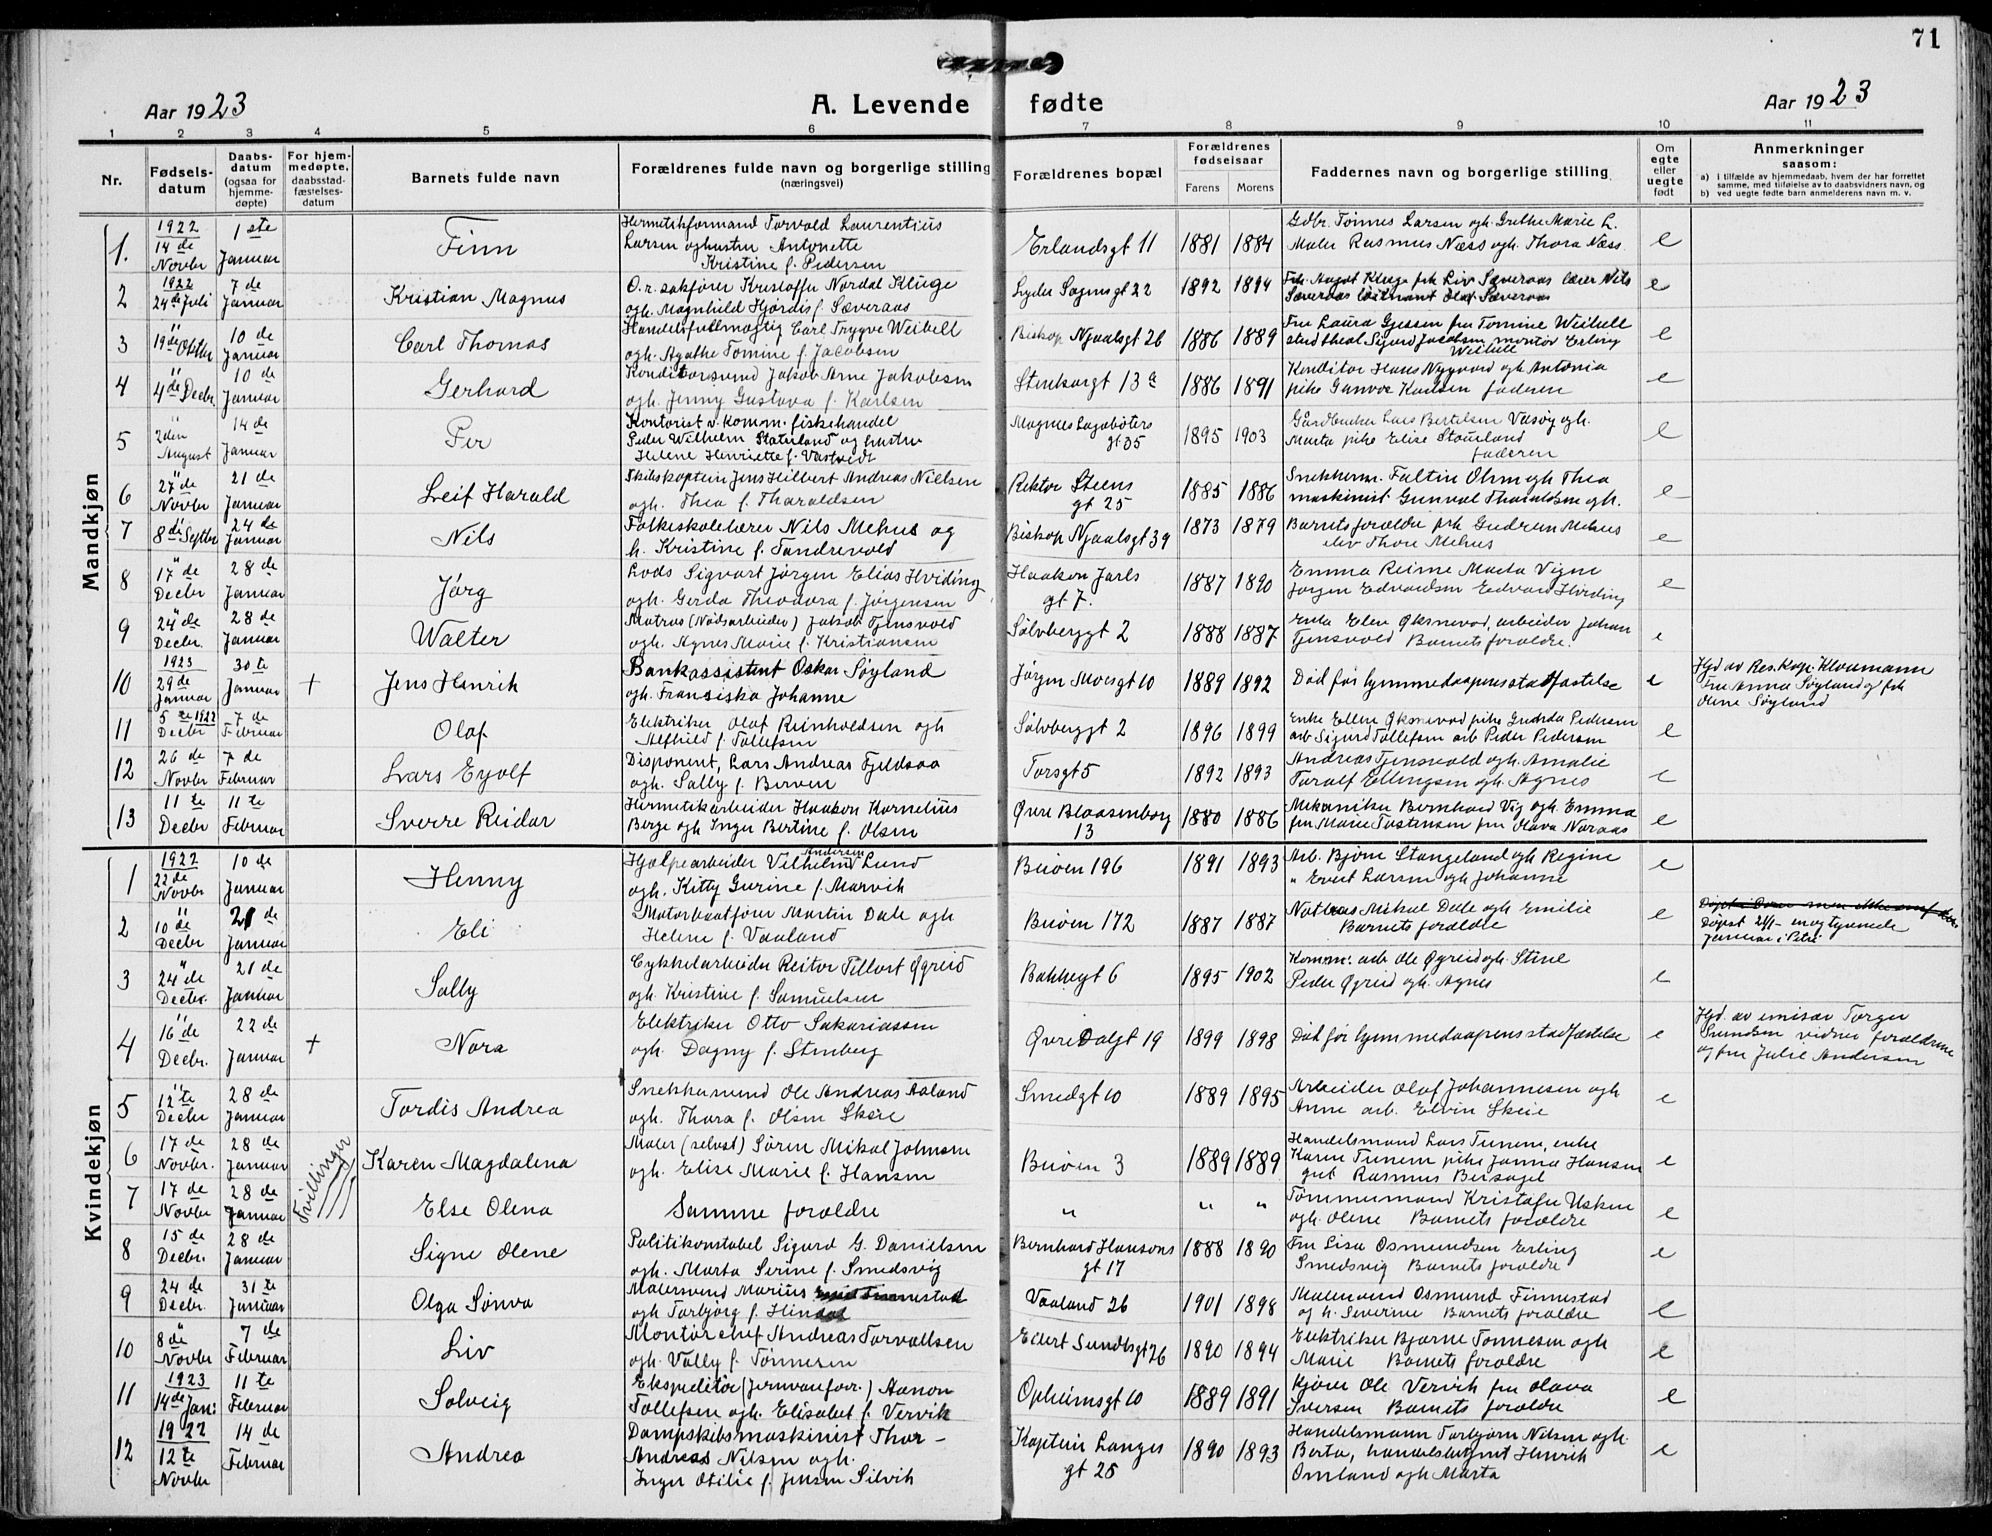 71
Aar 1923
A. Levende fødte
Aar 1923
1 2 3 4 5 6 7 8 9 10 11
Nr.
Fødsels-
datum
Daabs-
datum
(ogsaa for
hjemme-
døpte)
For hjem-
medøpte,
daabsstad-
fæstelses-
datum
Barnets fulde navn
Forældrenes fulde navn og borgerlige stilling
(næringsvei)
Forældrenes bopæl
Forældrenes
fødselsaar
Farens Morens
Faddernes navn og borgerlige stilling
Om
egte
eller
uegte
født
Anmerkninger
saasom:
a) i tilfælde av hjemmedaab, hvem der har forrettet
samme, med tilføielse av to daabsvidners navn, og
b) ved uegte fødte barn anmelderens navn m. v.
Mandkjøn
1. 1922 14de Novbr 1ste Januar Finn
Hermetikformand Torvald Laurentius
Larsen og hustru Antonette
Kristine f. Pedersen
Erlandsgt 11 1881 1884
Gdbr. Tönnes Larsen ogh. Grethe Marie L.
Maler Rasmus Næss ogh. Thora Næss e
2 1922 24de Juli 7de Januar Kristian Magnus
O.r. sakfører Kristoffer Nordal Kluge
ogh. Magnhild Hjørdis f. Sæveraas
Lyder Sagens gt 22 1892 1894
Frk. Aagot Kluge frk Liv Sæveraas lærer Nils
Sæveraas løitnant Olaf Sæveraas e
3 " 19de Oktbr 10de Januar Carl Thomas
Handelsfullmægtig Carl Trygve Weibell
ogh. Agathe Tomine f. Jacobsen
Biskop Njaalsgt 26 1886 1889
Fru Laura Gjessen fru Tomine Weibell
stud theol Sigurd Jacobsen montør Erling
Weibell e
4 " 4de Decbr. 10de Januar Gerhard
Konditorsvend Jakob Arne Jakobsen
ogh. Jenny Gustava f. Karlsen
Stenkargt 13a 1886 1891
Konditor Hans Nygaard ogh Antonia
pike Gunvor Karlsen faderen e
5 " 2den August 14de Januar Per
Kontorist v. komm. fiskehandel
Peder Wilhelm Staurland og hustru
Helene Henriette f. Vastvedt
Magnus Lagabøters
gt 35 1895 1903
Gårdbruker Lars Bertelsen Vasøy ogh.
Marta pike Elise Staurland
faderen e
6 " 27de Novbr 21de Januar Leif Harald
Skibskaptein Jens Hilbert Andreas Nielsen
ogh. Thea f. Tharaldsen
Rektor Steens
gt 25 1885 1886
Snekkerm. Faltin Ohm ogh Thea
maskinist Gunval Tharaldsen ogh. e
7 " 8de Septbr 24de Januar Nils
Folkeskolelærer Nils Mehus og
h. Kristine f. Tandrevold
Biskop Njaalsgt 39 1873 1879
Barnets forældre frk Gudrun Mehus
elev Thore Mehus e
8 " 17de Decbr 28de Januar Jörg
Lods Sigvart Jørgen Elias Hviding
ogh. Gerda Theodora f. Jørgensen
Haakon Jarls
gt 7. 1887 1890
Emma Reime Marta Vigne
Jørgen Edvardsen Edvard Hviding e
9 " 24de Decbr. 28de Januar Walter
Matros (Nødsarbeider) Jakob Tjensvold
ogh. Agnes Marie f. Kristiansen
Sølvberggt 2 1888 1887
Enke Elen Øksnevad, arbeider Johan
Tjensvold Barnets forældre. e
10 1923 29de Januar 30te Januar + Jens Henrik
Bankassistent Oskar Søyland
ogh. Fransiska Johanne
Jørgen Moesgt 10 1889 1892
Død før hjemmedaapens stadfæstelse e
Hjd av Res.kap. Kloumann
Fru Anna Søyland og frk
Olene Søyland
11 5te 1922 Decbr 7de Februar Olaf
Elektriker Olaf Reinholdsen ogh
Alfhild f. Tollefsen
Sølvberggt 2 1896 1899
Enke Ellen Øksnevad pike Gudrda Pedersen
arb Sigurd Tollefsen arb Peder Pedersen e
12 26de Novbr 7de Februar Lars Eyolf
Disponent, Lars Andreas Fjeldsaa
ogh. Sally f. Berven
Torsgt 5 1892 1893
Andreas Tjensvold ogh. Amalie
Toralf Ellingsen ogh. Agnes e
13 11te Decbr 11te Februar Sverre Reidar
Hermetikarbeider Haakon Kornelius
Berge ogh Inger Bertine f. Olsen
Øvre Blaasenborg
13 1880 1886
Mekaniker Bernhard Vig ogh. Emma
fru Marie Tostensen fru Olava Noraas e
Kvindekjøn
1 1922 22de Novbr 10de Januar Henny
Hjælpearbeider Vilhelm Andersen Lund
ogh. Kitty Gurine f. Marvik
Buøen 196 1891 1893
Arb. Bjørn Stangeland ogh Regine
" Evert Larsen ogh Johanne e
2 " 10de Decbr 21de Januar Eli
Motorbaatfører Martin Dale ogh
Helene f. Vaaland
Buøen 172 1887 1887
Mikal Dale ogh Emilie
Barnets forældre e
Døpst 21/1 - en og tyvende
Januar i Petri
3 " 24de Decbr. 21de Januar Sally
Cykkelarbeider Reitor Tellort Øgreid
ogh. Kristine f. Samuelsen
Bakkegt 6 1895 1902
Komm. arb Ole Øgreid ogh. Stine
Peder Øgreid ogh. Agnes e
4 " 16de Decbr. 22de Januar + Nora
Elektriker Otto Sakariassen
ogh. Dagny f. Stenberg
Øvre Dalgt 19 1899 1898
Død før hjemmedaapens stadfæstelse e
Hjd. av emisær Torger
Svendsen vidner forældrene
og fru Julie Andersen
5 " 12te Decbr 28de Januar Tordis Andrea
Snekkersvend Ole Andreas Aaland
ogh. Thora f. Olsen Skeie
Smedgt 10 1889 1895
Arbeider Olaf Johannesen ogh
Anne arb. Elvin Skeie e
6 17de Novbr. 28de Januar Tvillinger Karen Magdalena
Maler (selvst) Søren Mikal Johnsen
ogh. Elise Marie f. Hansen
Buøen 3 1889 1889
Handelsmand Lars Tunem, enke
Karen Tunem pike Janna Hansen
gut Rasmus Bersagel e
7 17de Novbr 28de Januar Else Olena
Samme forældre
" " "
Tømmermand Kristofer Usken
ogh. Olene Barnets forældre e
8 15de Decbr. 28de Januar Signe Olene
Politikonstabel Sigurd G. Danielsen
ogh. Marta Serine f. Smedsvig
Bernhard Hansens
gt 17 1888 1890
Fru Lisa Osmundsen Erling
Smedsvig Barnets forældre e
9 24de Decbr. 31te Januar Olga Sønva
Malersvend Marius Finnestad
ogh Torbjørg f. Hindal
Vaaland 26 1901 1898
Malersvend Osmund Finnestad
og h. Severine Barnets forældre e
10 " 8de Novbr 7de Februar Liv
Montör chef Andreas Torvaldsen
ogh. Vally f. Tønnesen
Eilert Sundtsgt 26 1890 1894
Elektriker Bjarne Tønnesen ogh
Marie Barnets forældre e
11 1923 14de Jan: 11te Februar Solveig
Ekspeditör (Jernvareforr.) Aanon
Tollefsen ogh. Elisabet f. Vervik
Opheimsgt 10 1889 1891
Kjører Ole Vervik fru Olava
Iversen Barnets forældre e
12 1922 12te Novbr 14de Februar Andrea
Dampskibsmaskinist Thor-
Andreas Nilsen ogh.
Inger Otilie f. Jensen Silvik
Kaptein Langes
gt 25 1890 1893
Handelsmann Torbjørn Nilsen ogh.
Berta, handelsbetjent Henrik
Omland ogh Marta e